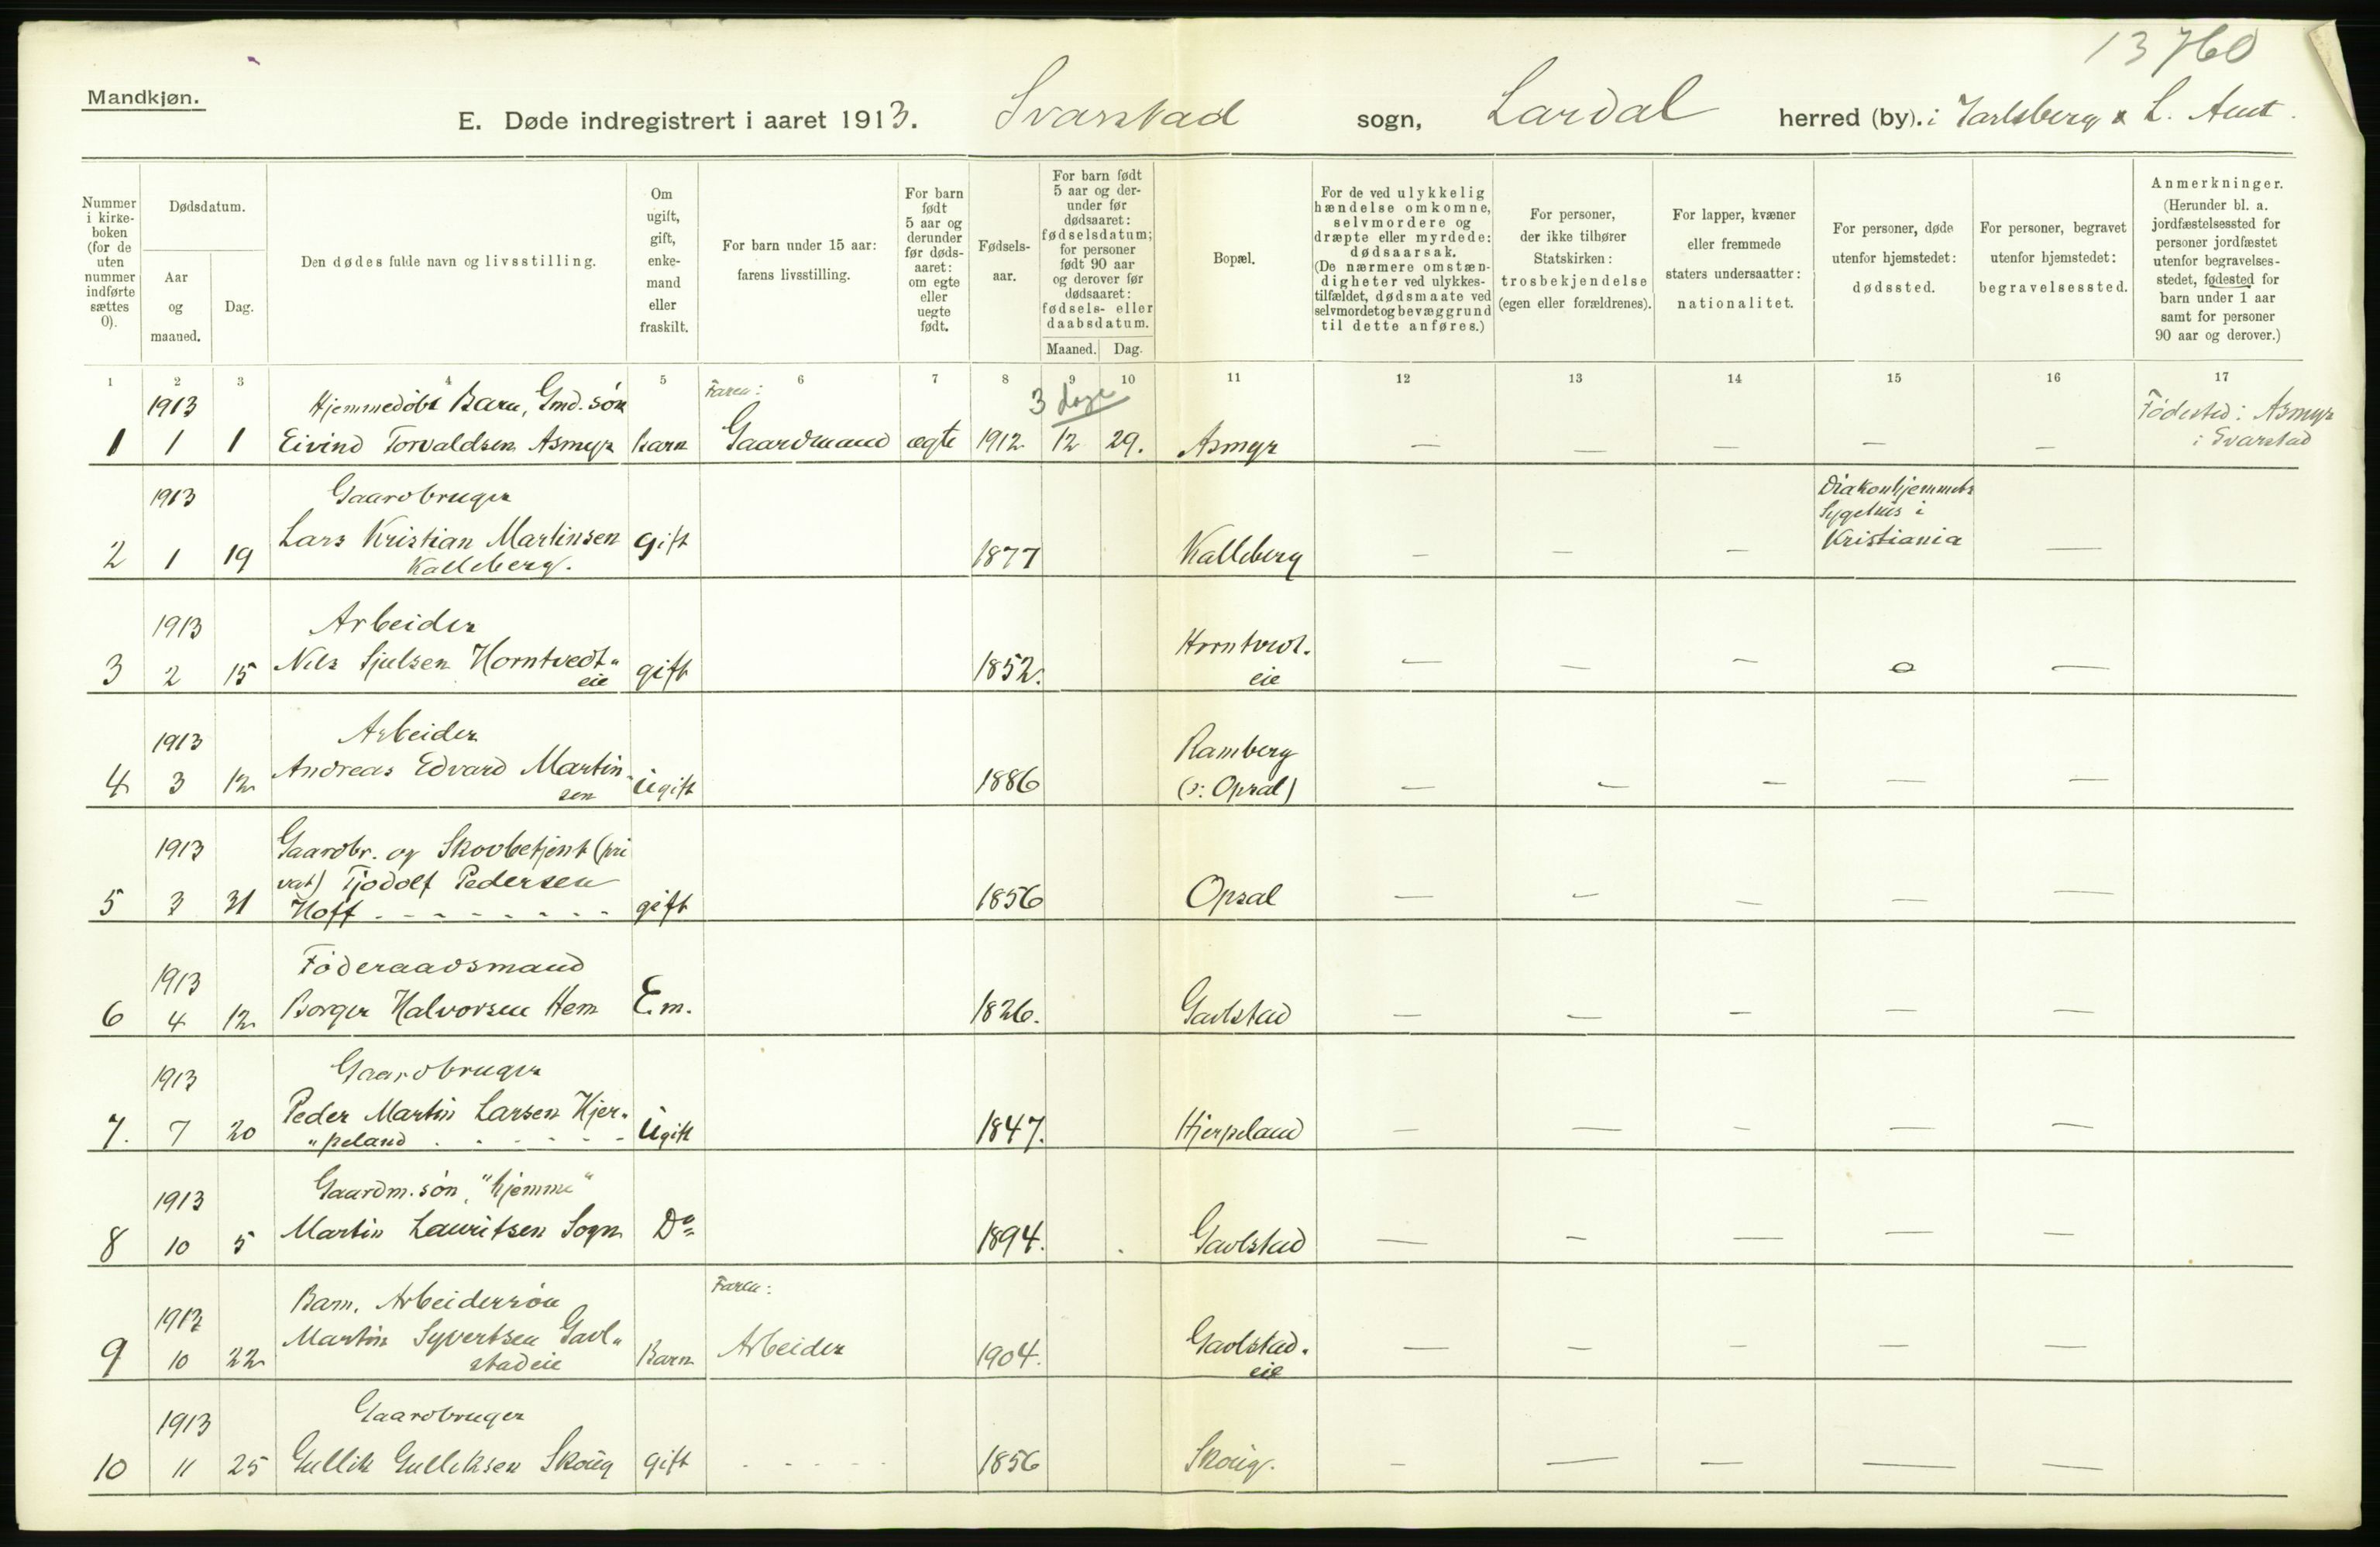 13760
Mandkjøn.
E. Døde indregistrert i aaret 1913. Svarstad sogn, Lardal herred (by). i Jarlsberg & L. Amt.
Nummer i kirke- boken (for de uten nummer indførte sættes 0).
Dødsdatum.
Aar og maaned.
Dag.
Den dødes fulde navn og livsstilling.
Om ugift, gift, enke- mand eller fraskilt.
For barn under 15 aar: farens livsstilling.
For barn født 5 aar og derunder før døds- aaret: om egte eller uegte født.
Fødsels- aar.
For barn født 5 aar og der- under før dødsaaret: fødselsdatum; for personer født 90 aar og derover før dødsaaret: fødsels- eller daabsdatum.
Maaned. Dag.
Bopæl.
For de ved ulykkelig hændelse omkomne, selvmordere og dræpte eller myrdede: dødsaarsak. (De nærmere omstæn- digheter ved ulykkes- tilfældet, dødsmaate ved selvmordet og bevæggrund til dette anføres.)
For personer, der ikke tilhører Statskirken: trosbekjendelse (egen eller forældrenes).
For lapper, kvæner eller fremmede staters undersaatter: nationalitet.
For personer, døde utenfor hjemstedet: dødssted.
For personer, begravet utenfor hjemstedet: begravelsessted.
Anmerkninger. (Herunder bl. a. jordfæstelsessted for personer jordfæstet utenfor begravelses- stedet, fødested for barn under 1 aar samt for personer 90 aar og derover.)
1 2 3 4 5 6 7 8 9 10 11 12 13 14 15 16 17
1913 Hjemmedøbt Barn, Gmd. søn Faren: 3 dage Fødested: Asmyr
1 1 1 Eivind Torvaldsen Asmyr barn Gaardmand ægte 1912. 12 29. Asmyr — — — — — i Svarstad
1913 Gaardbruger Diakonhjemmets
Sygehus i
2 1 19 Lars Kristian Martinsen gift 1877 Kalleberg — — — Kristiania —
Kalleberg.
1913 Arbeider Horntvedt-
3 2 15 Nils Sjulsen Horntvedt- gift 1852. eie — — — o —
eie
1913 Arbeider Ramberg
4 3 12 Andreas Edvard Martin- Ugift 1886 (ɔ: Opsal) — — — — —
sen
1913 Gaardbr. og Skovbetjent (pri
vat) Tjodolf Pedersen
5 3 31 Hoff - - - - - - - - gift 1856 Opsal — — — — —
1913 Føderaadsmand
6 4 12 Borger Halvorsen Hem E.m. 1826. Gavlstad — — — — —
1913 Gaardbruger
Peder Martin Larsen Hjer-
7. 7 20 "peland . - - - - - Ugift 1847. Hjerpeland — — — — —
1913 Gaardm. søn, "hjemme"
8 10 5 Martin Lauritsen Sogn Do 1894. Gavlstad — — — — —
Barn. Arbeidersøn Faren:
1913 Martin Syvertsen Gavl- Gavlstad-
9 10 22 stadeie Barn Arbeider 1904. eie — — — — —
1913 Gaardbruger
10 11 25 Gullik Gulliksen Skoug gift - - - - - 1856 Skoug. — — — — —